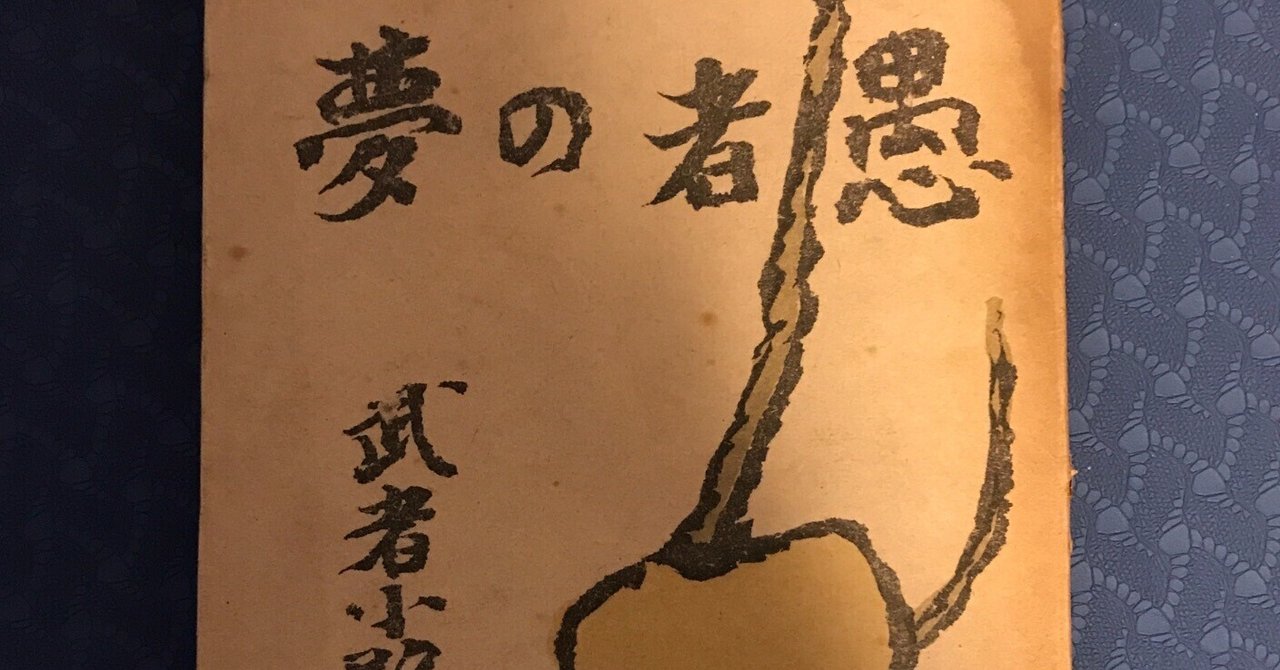 愚者の夢
武者小